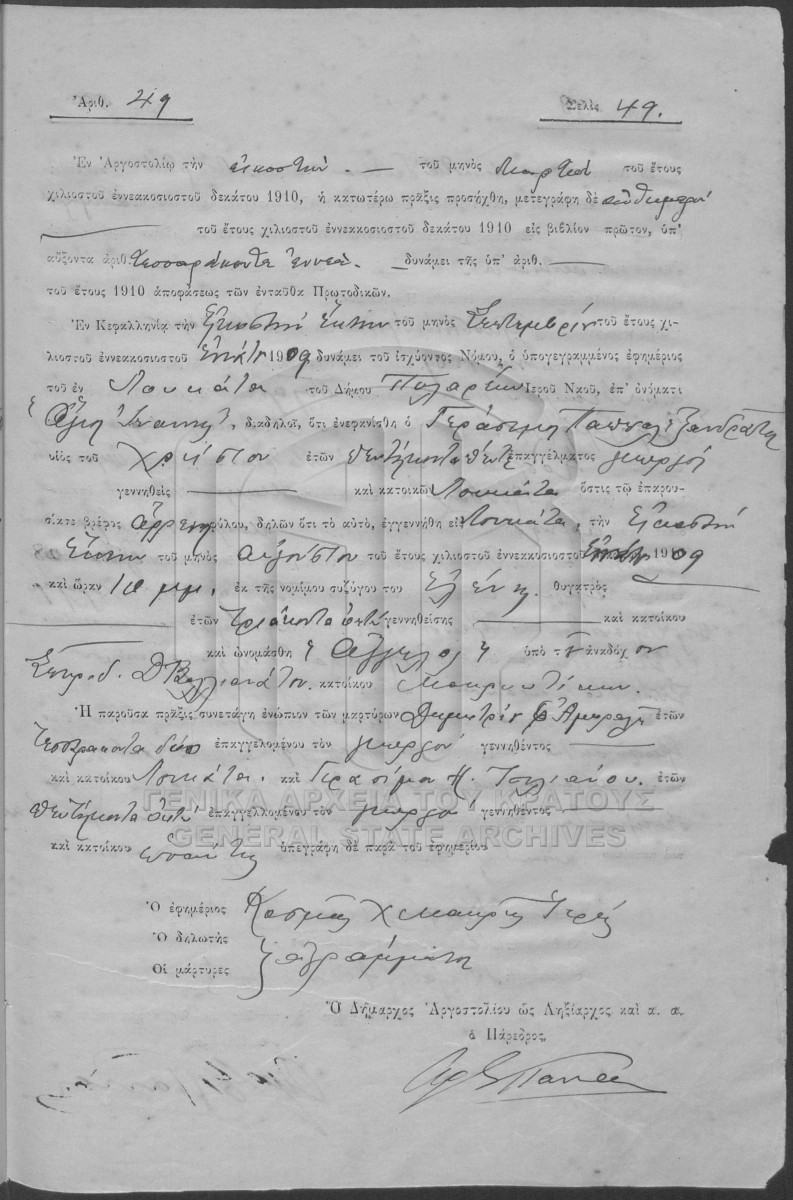 Ἀριθ. 49
Σελὶς 49.
Ἐν Ἀργοστολίῳ τὴν εἰκοστὴν. — τοῦ μηνὸς Μαρτίου τοῦ ἔτους
χιλιοστοῦ ἐννεακοσιοστοῦ δεκάτου 1910, ἡ κατωτέρω πρᾶξις προσήχθη, μετεγράφη δὲ αὐθημερὸν
τοῦ ἔτους χιλιοστοῦ ἐννεακοσιοστοῦ δεκάτου 1910 εἰς βιβλίον πρῶτον, ὑπ'
αὔξοντα ἀριθ. τεσσαράκοντα ἐννέα. — δυνάμει τῆς ὑπ' ἀριθ. —
τοῦ ἔτους 1910 ἀποφάσεως τῶν ἐνταῦθα Πρωτοδικῶν.
Ἐν Κεφαλληνίᾳ τὴν Εἰκοστὴν Ἕκτην τοῦ μηνὸς Σεπτεμβρίου τοῦ ἔτους χι-
λιοστοῦ ἐννεακοσιοστοῦ Ἐνάτου 1909 δυνάμει τοῦ ἰσχύοντος Νόμου, ὁ ὑπογεγραμμένος ἐφημέριος
τοῦ ἐν Λουκάτα τοῦ Δήμου Παλαρέων Ἱεροῦ Ναοῦ, ἐπ' ὀνόματι
διαδηλοῖ, ὅτι ἐνεφανίσθη ὁ Γεράσιμος Παπααλεξανδράτος
υἱὸς τοῦ Χρήστου ἐτῶν πεντήκοντα πέντε ἐπαγγέλματος γεωργοῦ
γεννηθεὶς — καὶ κατοικῶν Λουκάτα ὅστις τῷ ἐπαρου-
σίασε βρέφος ἄρρεν φύλου, δηλῶν ὅτι τὸ αὐτὸ, ἐγγεννήθη εἰς Λουκάτα, τὴν Εἰκοστὴν
Ἕκτην τοῦ μηνὸς Αὐγούστου τοῦ ἔτους χιλιοστοῦ ἐννεακοσιοστοῦ Ἐνάτου 1909
καὶ ὥραν 10 μμ. ἐκ τῆς νομίμου συζύγου του Ἑλένης. θυγατρὸς —
ἐτῶν τριάκοντα ὀκτὼ γεννηθείσης — καὶ κατοίκου
καὶ ὠνομάσθη Ἄγγελος ὑπὸ τοῦ ἀναδόχου
Σπυρίδ. Δ Βαλλιανάτου. κατοίκου Μακρυωτίκων.
Ἡ παροῦσα πρᾶξις συνετάγη ἐνώπιον τῶν μαρτύρων Δημητρίου ἐτῶν
Τεσσαράκοντα δύο ἐπαγγελομένου τὸν γεωργὸν γεννηθέντος —
καὶ κατοίκου Λουκάτα. καὶ Γερασίμου ἐτῶν
πεντήκοντα ὀκτὼ ἐπαγγελλομένου τὸν γεωργὸν γεννηθέντος —
καὶ κατοίκου ὑπεγράφη δὲ παρὰ τοῦ ἐφημερίου
ΓΕΝΙΚΑ ΑΡΧΕΙΑ ΤΟΥ ΚΡΑΤΟΥΣ
GENERAL STATE ARCHIVES
Ὁ ἐφημέριος Κοσμᾶς Χ Μακρῆς Ἱερεύς
Ὁ δηλωτὴς
Οἱ μάρτυρες ἀγράμματοι
Ὁ Δήμαρχος Ἀργοστολίου ὡς Ληξίαρχος καὶ α. α.
ὁ Πάρεδρος,